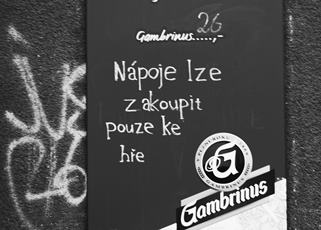 26
Gambrinus.....,-
Nápoje lze
zakoupit
pouze ke
hře
G
Gambrinus